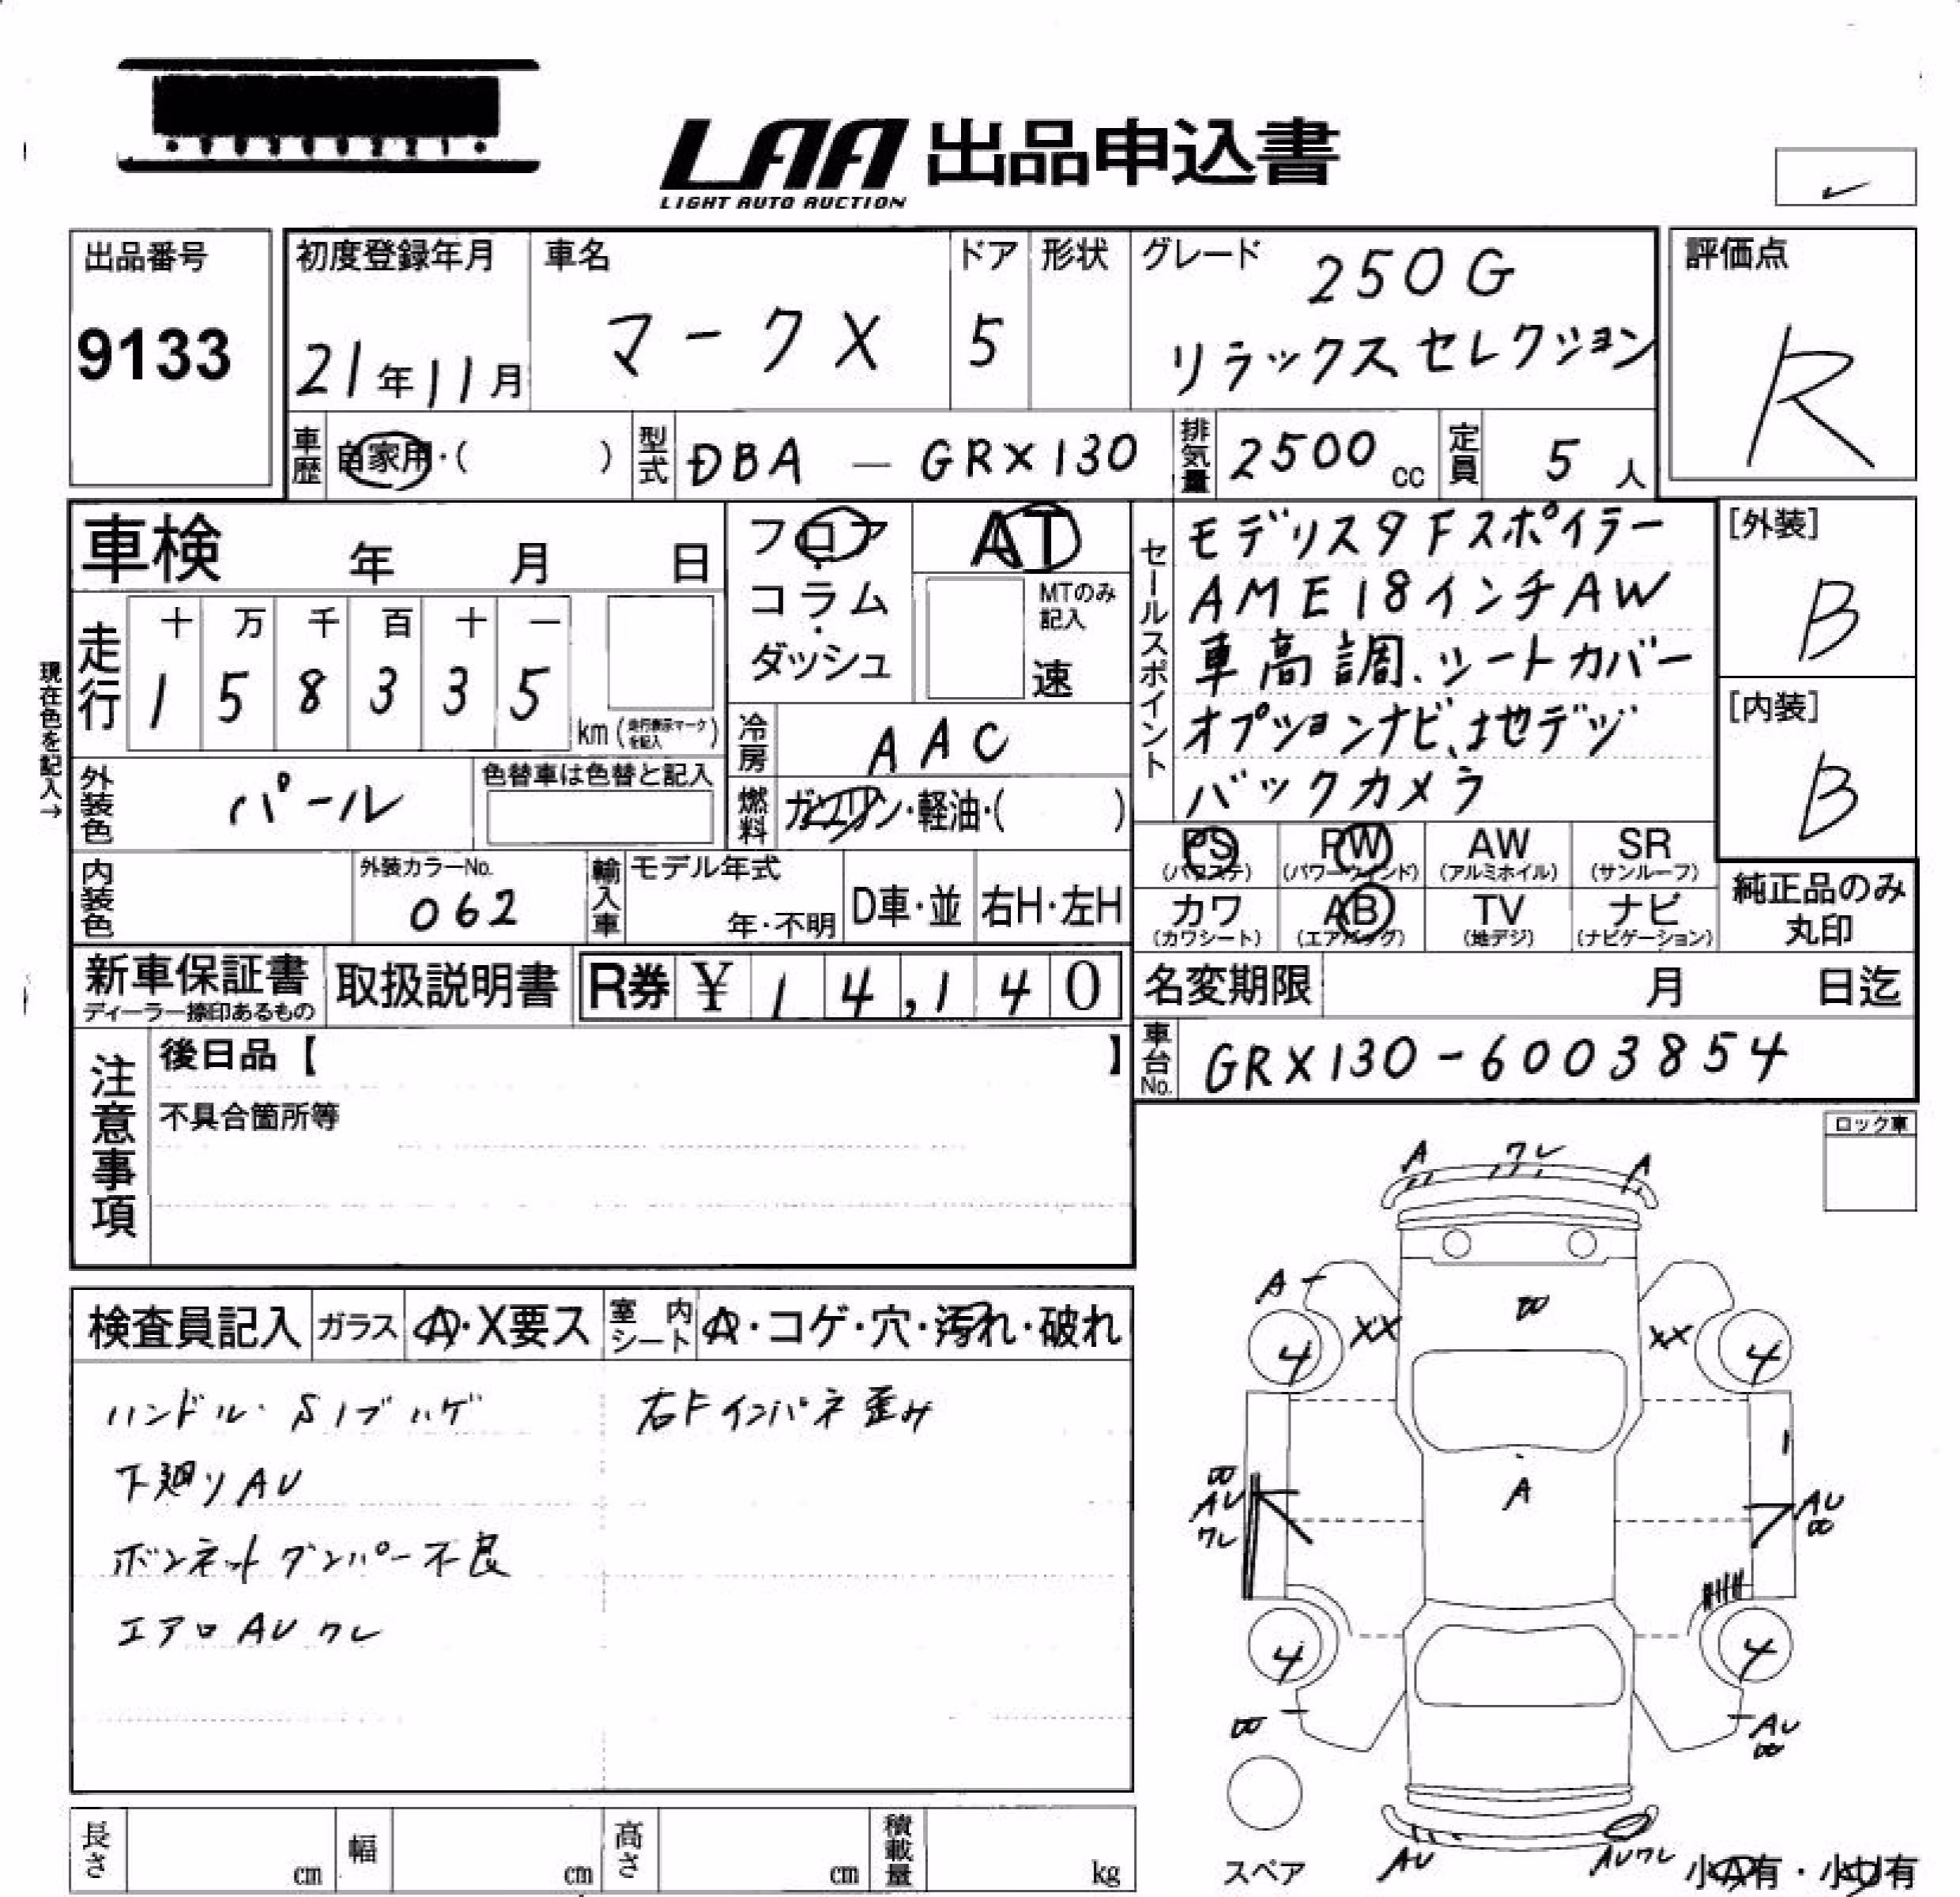 LAA 出品申込書
LIGHT AUTO AUCTION
出品番号
9133
初度登録年月
21年11月
車名
マークX
ドア
5
形状
グレード
250G
リラックスセレクション
評価点
R
車歴
自家用・( )
型式
DBA － GRX130
排気量
2500 cc
定員
5 人
車検 年 月 日
走行
十 万 千 百 十 一
1 5 8 3 3 5
km(走行表示マークを記入)
現在色を記入→
フロア
・
コラム
・
ダッシュ
AT
MTのみ記入
速
冷房
AAC
燃料
ガソリン・軽油・( )
外装色
パール
色替車は色替と記入
内装色
外装カラーNo.
062
輸入車
モデル年式
年・不明
D車・並
右H・左H
セールスポイント
モデリスタFスポイラー
AME18インチAW
車高調、シートカバー
オプションナビ、地デジ
バックカメラ
[外装]
B
[内装]
B
PS (パワステ)
PW (パワーウインド)
AW (アルミホイル)
SR (サンルーフ)
カワ (カワシート)
AB (エアバッグ)
TV (地デジ)
ナビ (ナビゲーション)
純正品のみ
丸印
新車保証書
ディーラー捺印あるもの
取扱説明書
R券 ¥ 14,140
名変期限 月 日迄
車台No.
GRX130-6003854
注意事項
後日品【 】
不具合箇所等
ロック車
検査員記入
ガラス
A・X要ス
室内シート
A・コゲ・穴・汚れ・破れ
ハンドル・Sノブハゲ
右Fインパネ歪み
下廻りAU
ボンネットダンパー不良
エアロAUワレ
A ワレ A
A
XX
XX
4
4
A
AU
ワレ
AU
4
4
AU
AU
AUワレ
スペア
小A有・小U有
長さ cm
幅 cm
高さ cm
積載量 kg